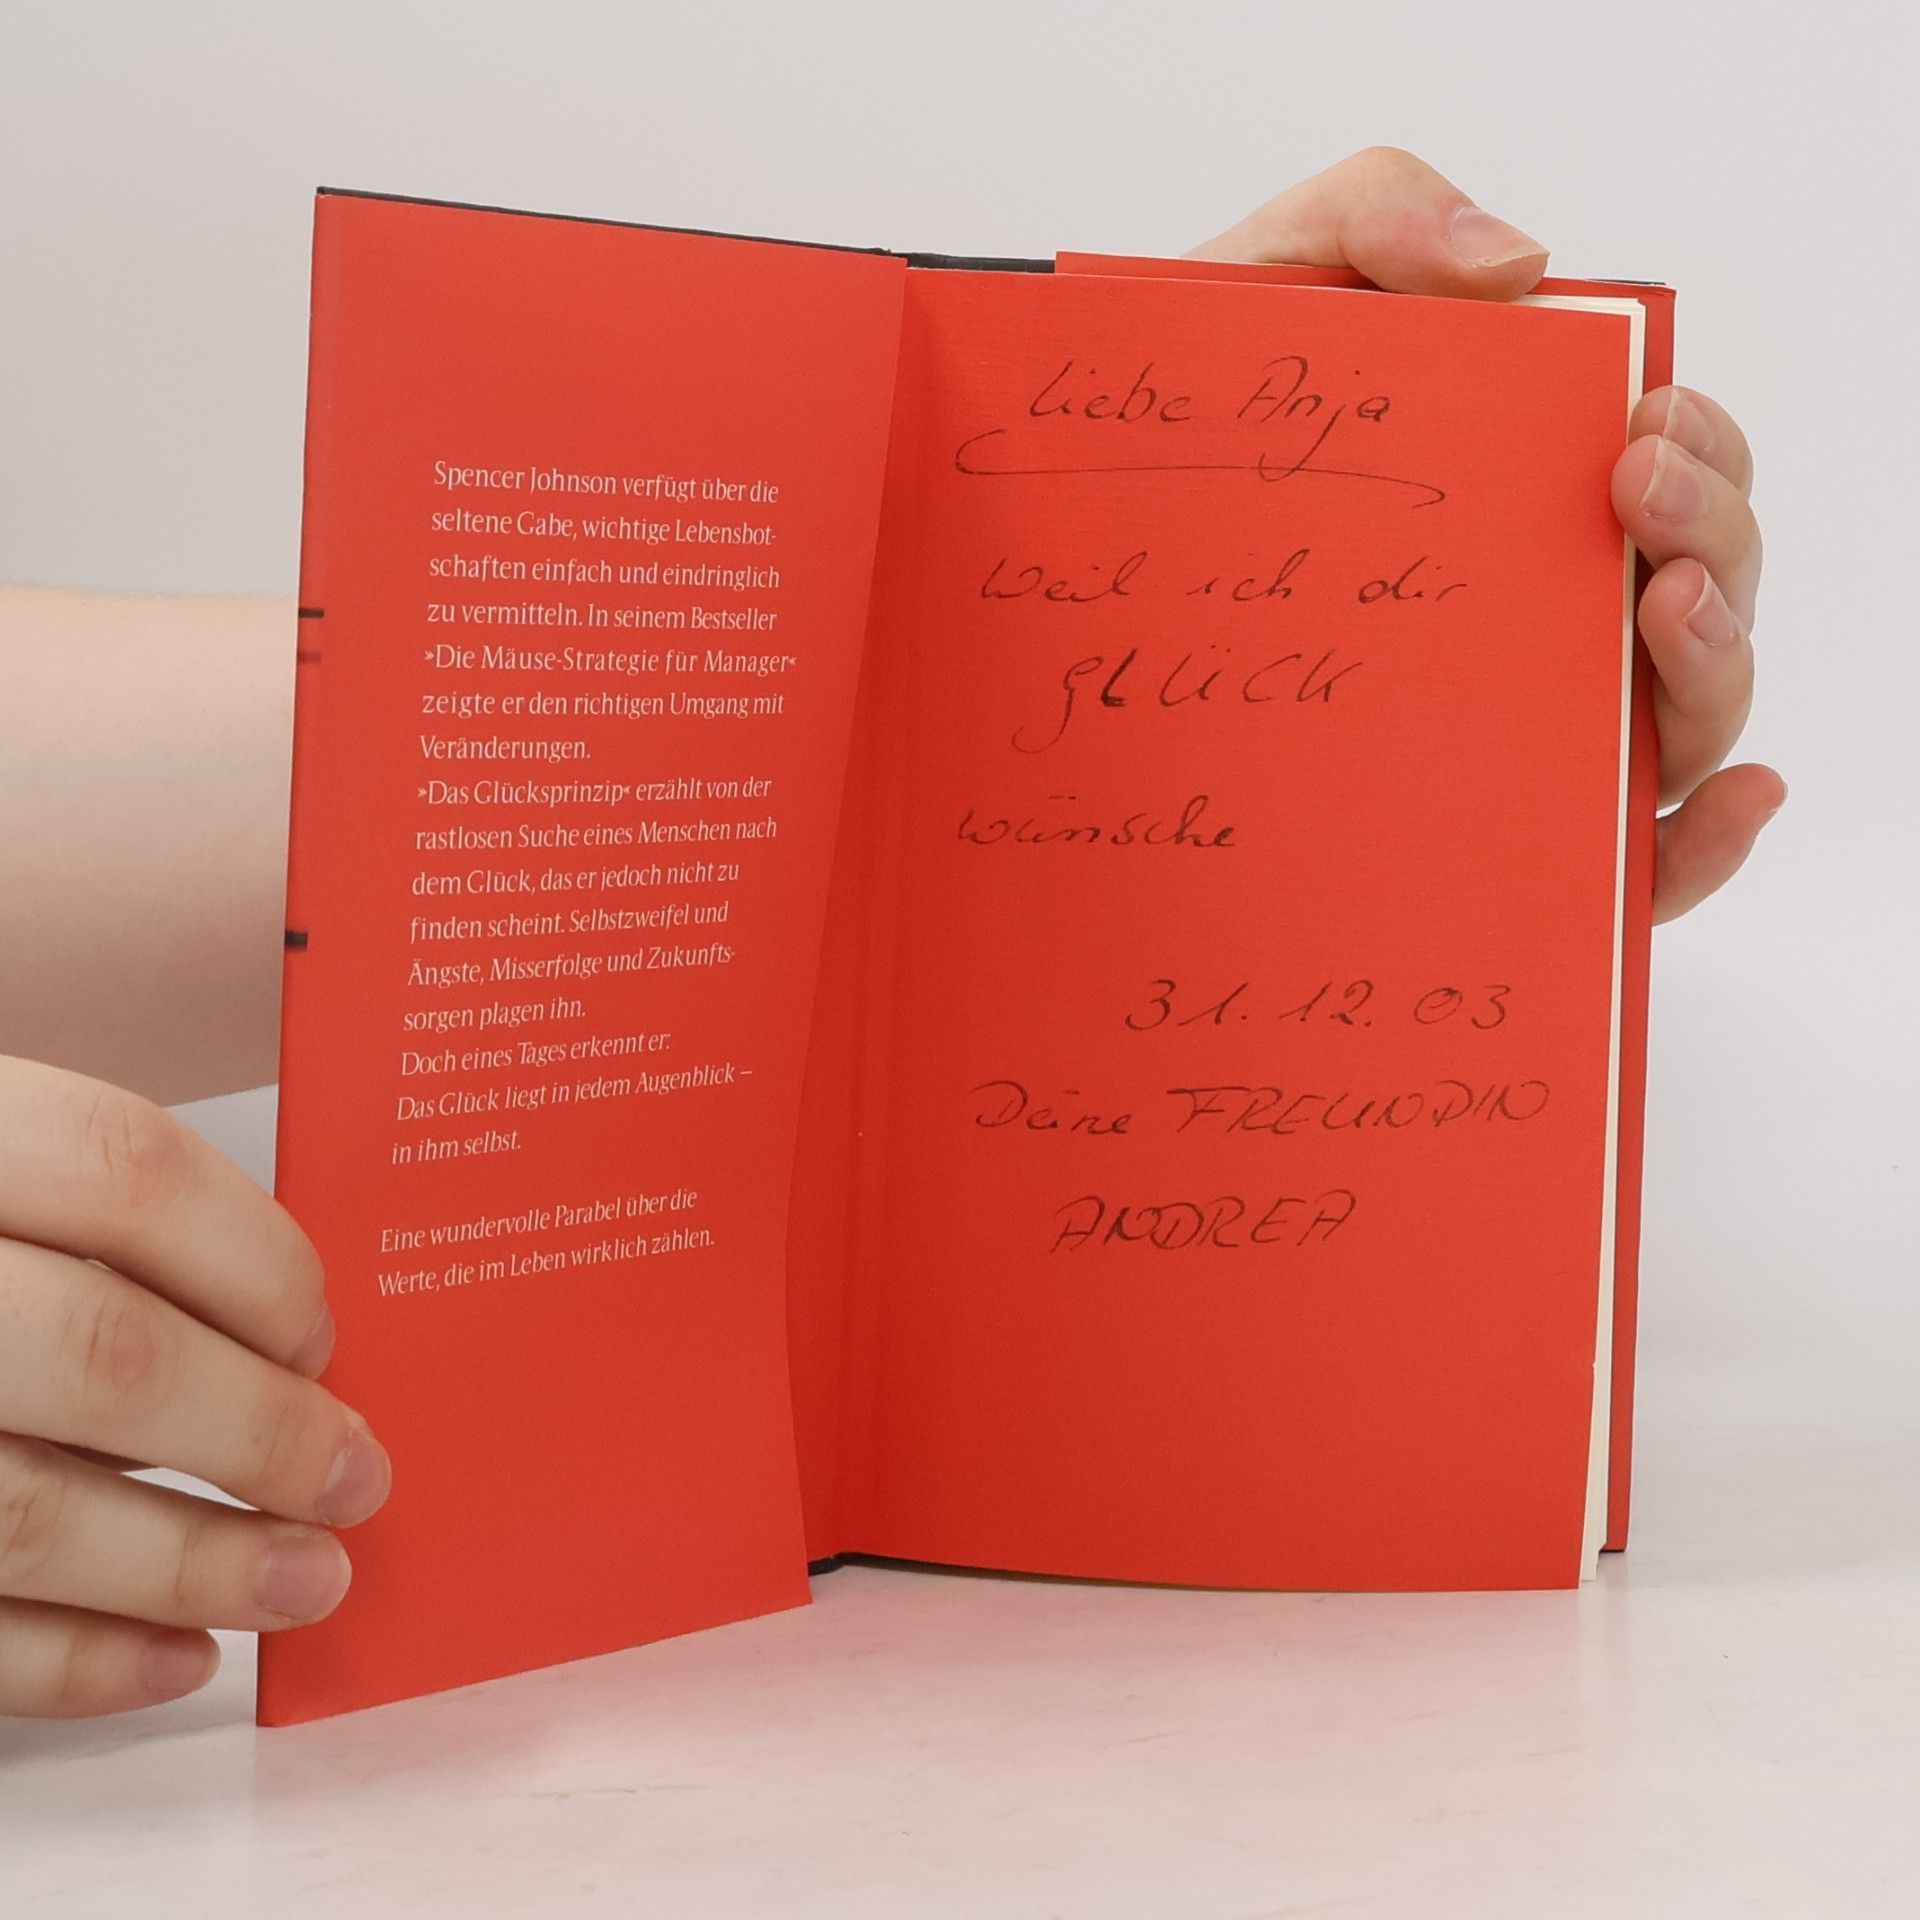 Spencer Johnson verfügt über die
seltene Gabe, wichtige Lebensbot-
schaften einfach und eindringlich
zu vermitteln. In seinem Bestseller
»Die Mäuse-Strategie für Manager«
zeigte er den richtigen Umgang mit
Veränderungen.
»Das Glücksprinzip« erzählt von der
rastlosen Suche eines Menschen nach
dem Glück, das er jedoch nicht zu
finden scheint. Selbstzweifel und
Ängste, Misserfolge und Zukunfts-
sorgen plagen ihn.
Doch eines Tages erkennt er:
Das Glück liegt in jedem Augenblick –
in ihm selbst.
Eine wundervolle Parabel über die
Werte, die im Leben wirklich zählen.
Liebe Anja
Weil ich dir
GLÜCK
wünsche
31. 12. 03
Deine FREUNDIN
ANDREA